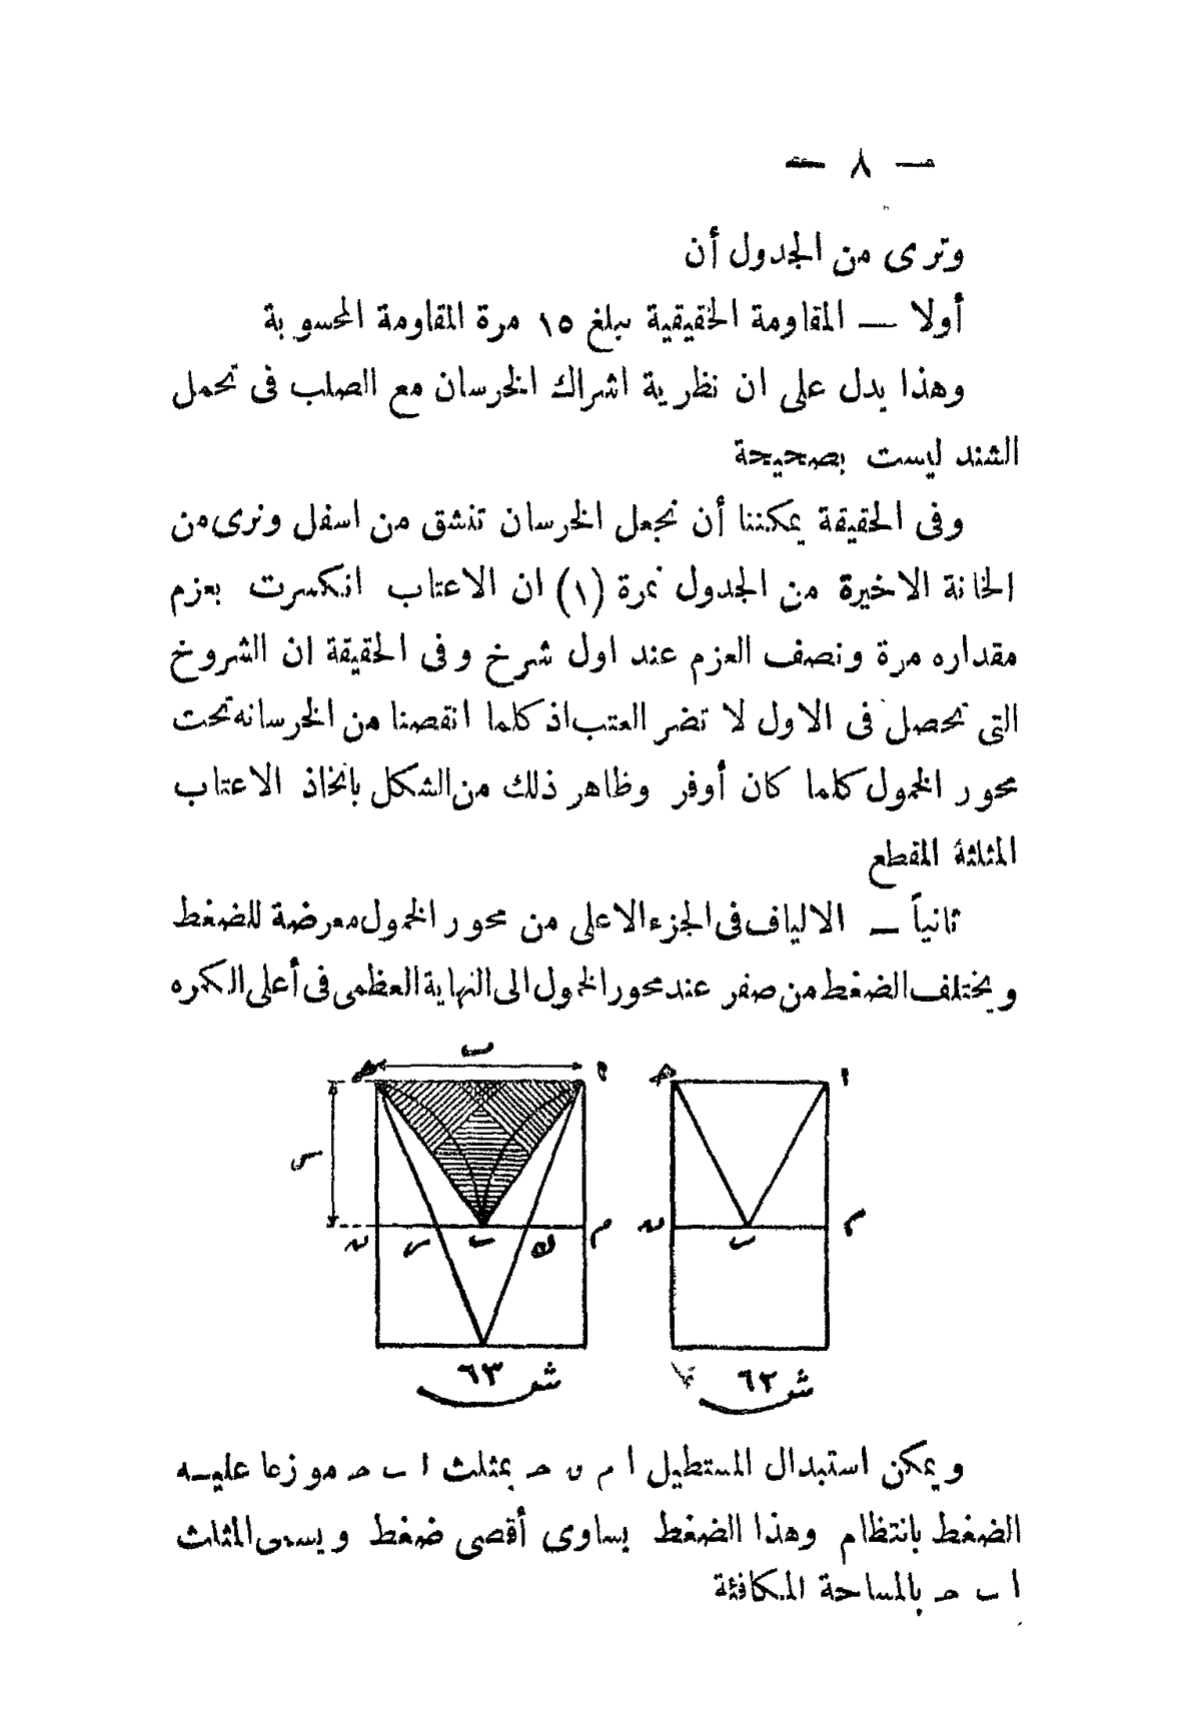 — ٨ —
وترى من الجدول أن
أولا — المقاومة الحقيقية يبلغ ١٥ مرة المقاومة المحسوبة
وهذا يدل على ان نظرية اشراك الخرسان مع الصلب فى تحمل
الشند ليست بصحيحة
وفى الحقيقة يمكننا أن نجعل الخرسان تنشق من اسفل ونرى من
الخانة الاخيرة من الجدول نمرة (١) ان الاعتاب انكسرت بعزم
مقداره مرة ونصف العزم عند اول شرخ وفى الحقيقة ان الشروخ
التى تحصل فى الاول لا تضر العتب اذ كلما انقصنا من الخرسانه تحت
محور الخمول كلما كان أوفر وظاهر ذلك من الشكل باتخاذ الاعتاب
المثلثة المقطع
ثانياً — الالياف فى الجزء الاعلى من محور الخمول معرضة للضغط
ويختلف الضغط من صفر عند محور الخمول الى النهاية العظمى فى أعلى الكمره
ب
ا
ا
س
م
ك
ب
س
ن
م
ب
ن
ش ٦٣
ش ٦٢
ويمكن استبدال المستطيل ا م ن ح بمثلث ا ب ح موزعا عليه
الضغط بانتظام وهذا الضغط يساوى أقصى ضغط ويسمى المثلث
ا ب ح بالمساحة المكافئة